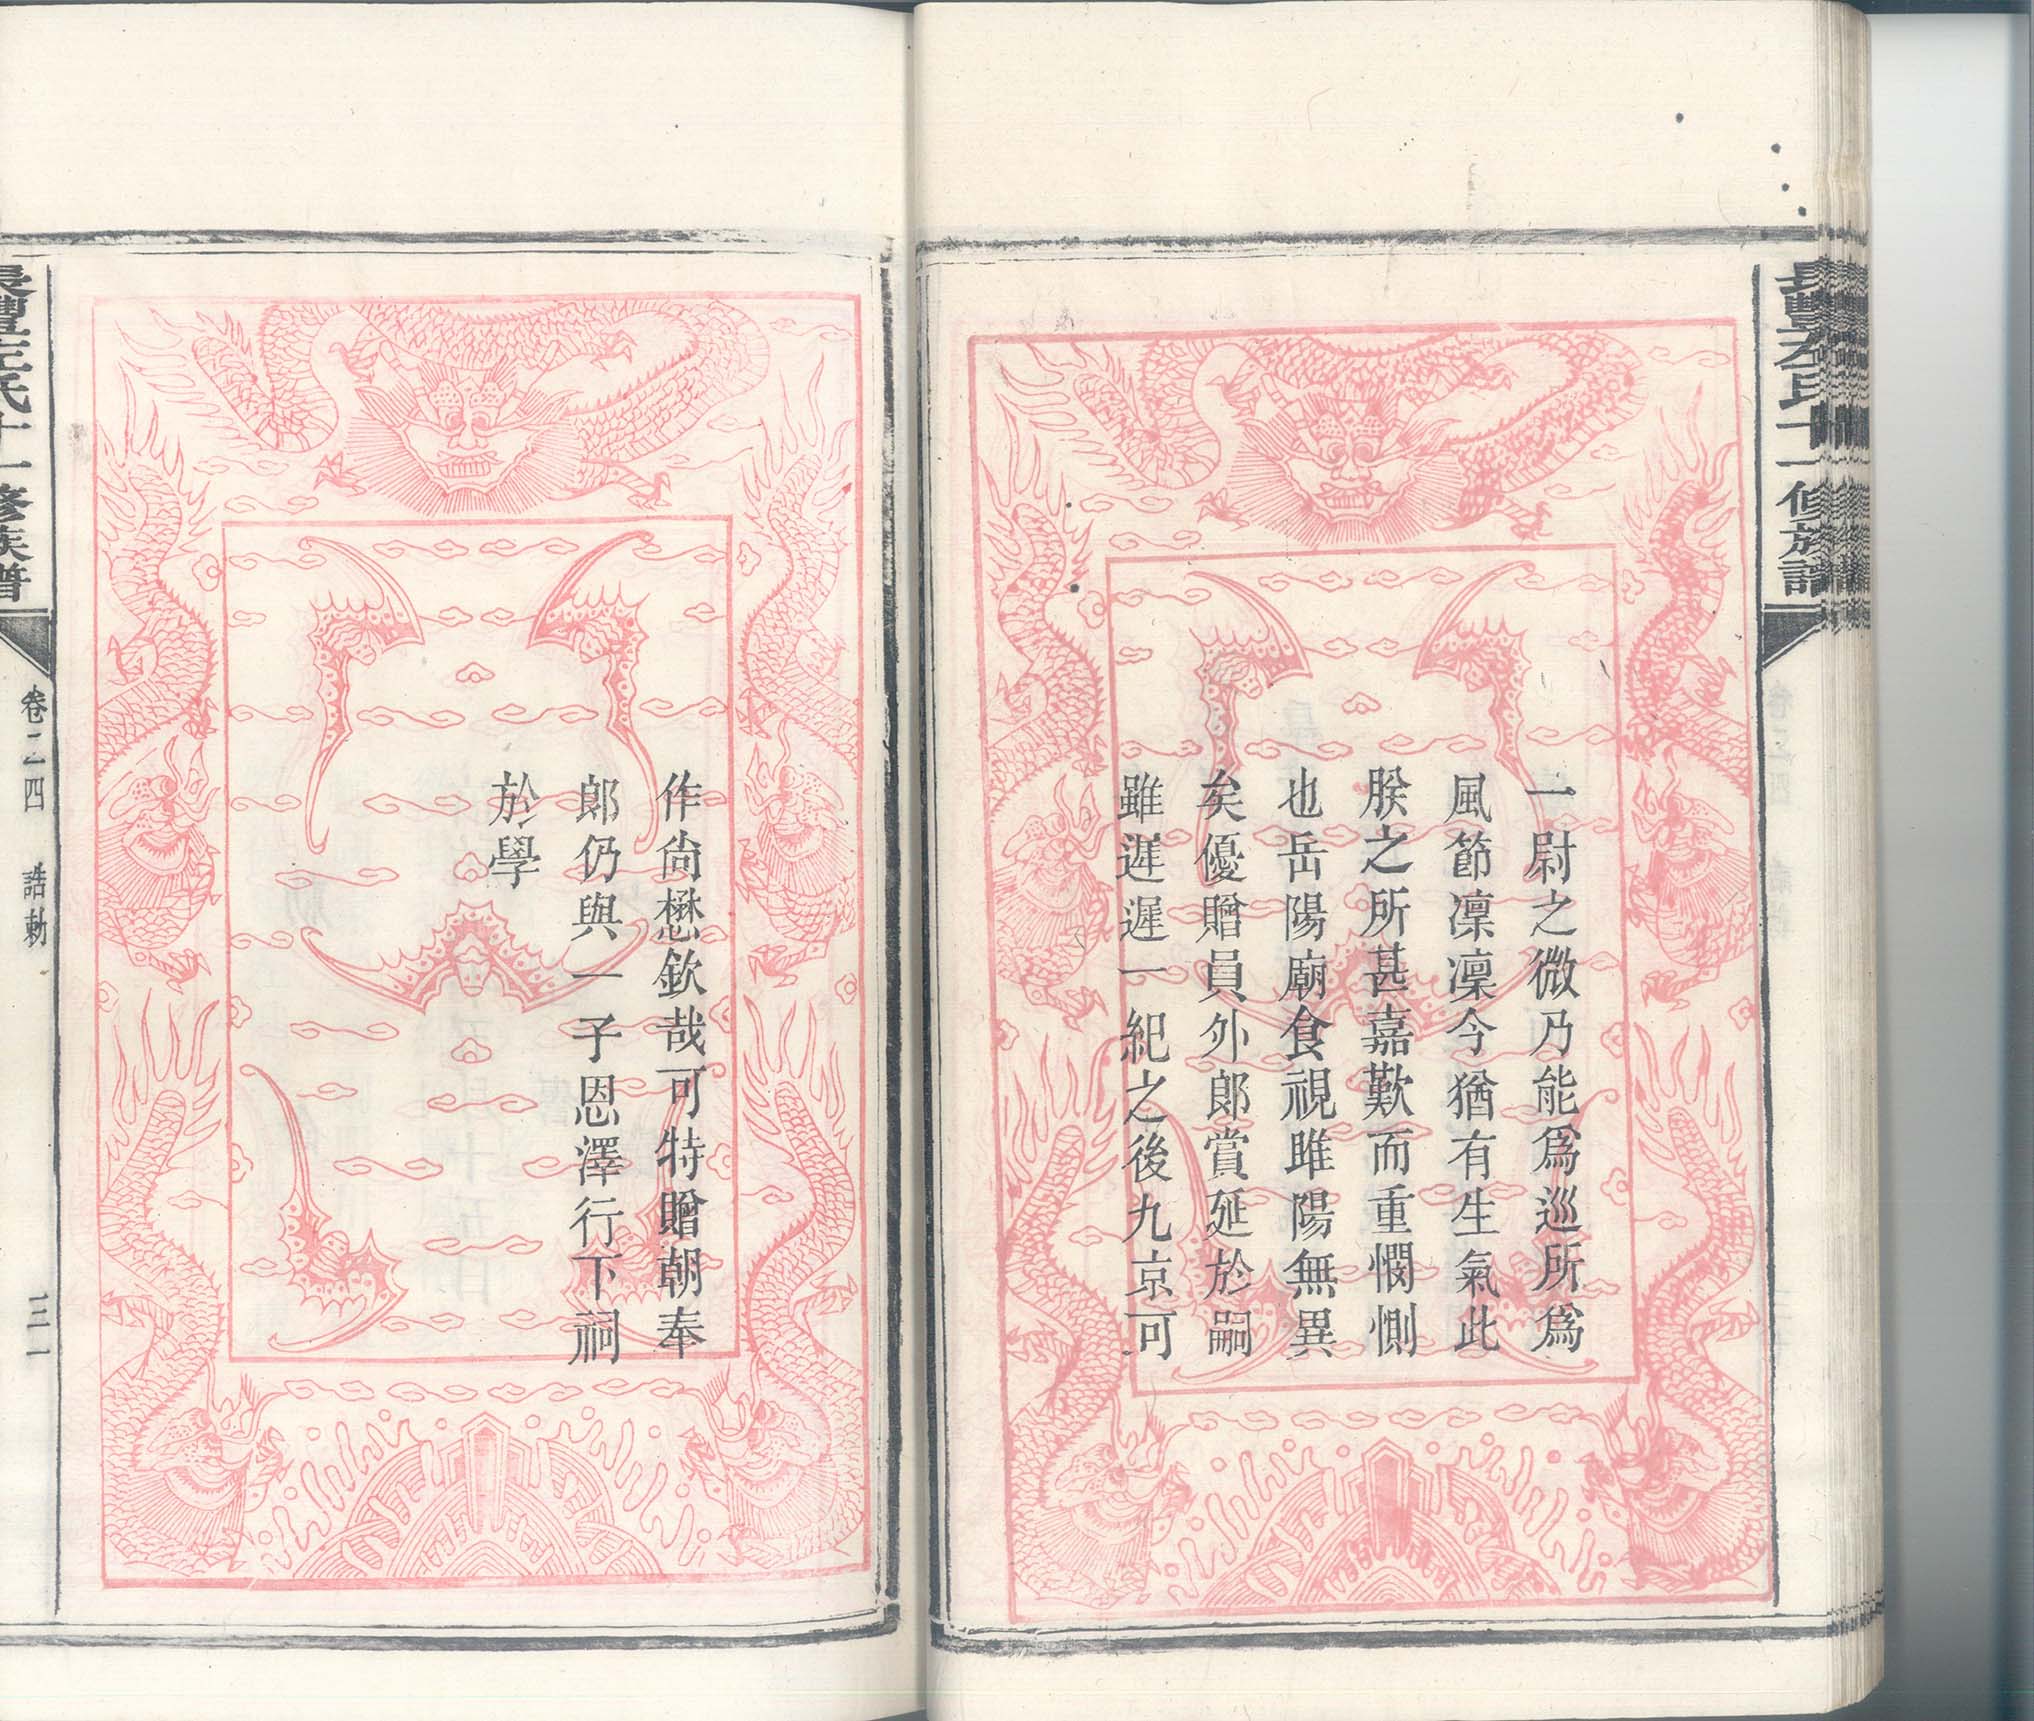 長豐左氏十一修族譜
一尉之微乃能爲巡所爲
風節凜凜今猶有生氣此
朕之所甚嘉歎而重憫惻
也岳陽廟食視雎陽無異
矣優贈員外郎賞延於嗣
雖遲遲一紀之後九京可
作尙懋欽哉可特贈朝奉
郎仍與一子恩澤行下祠
於學
長豐左氏十一修族譜
卷二四 誥勅
三一